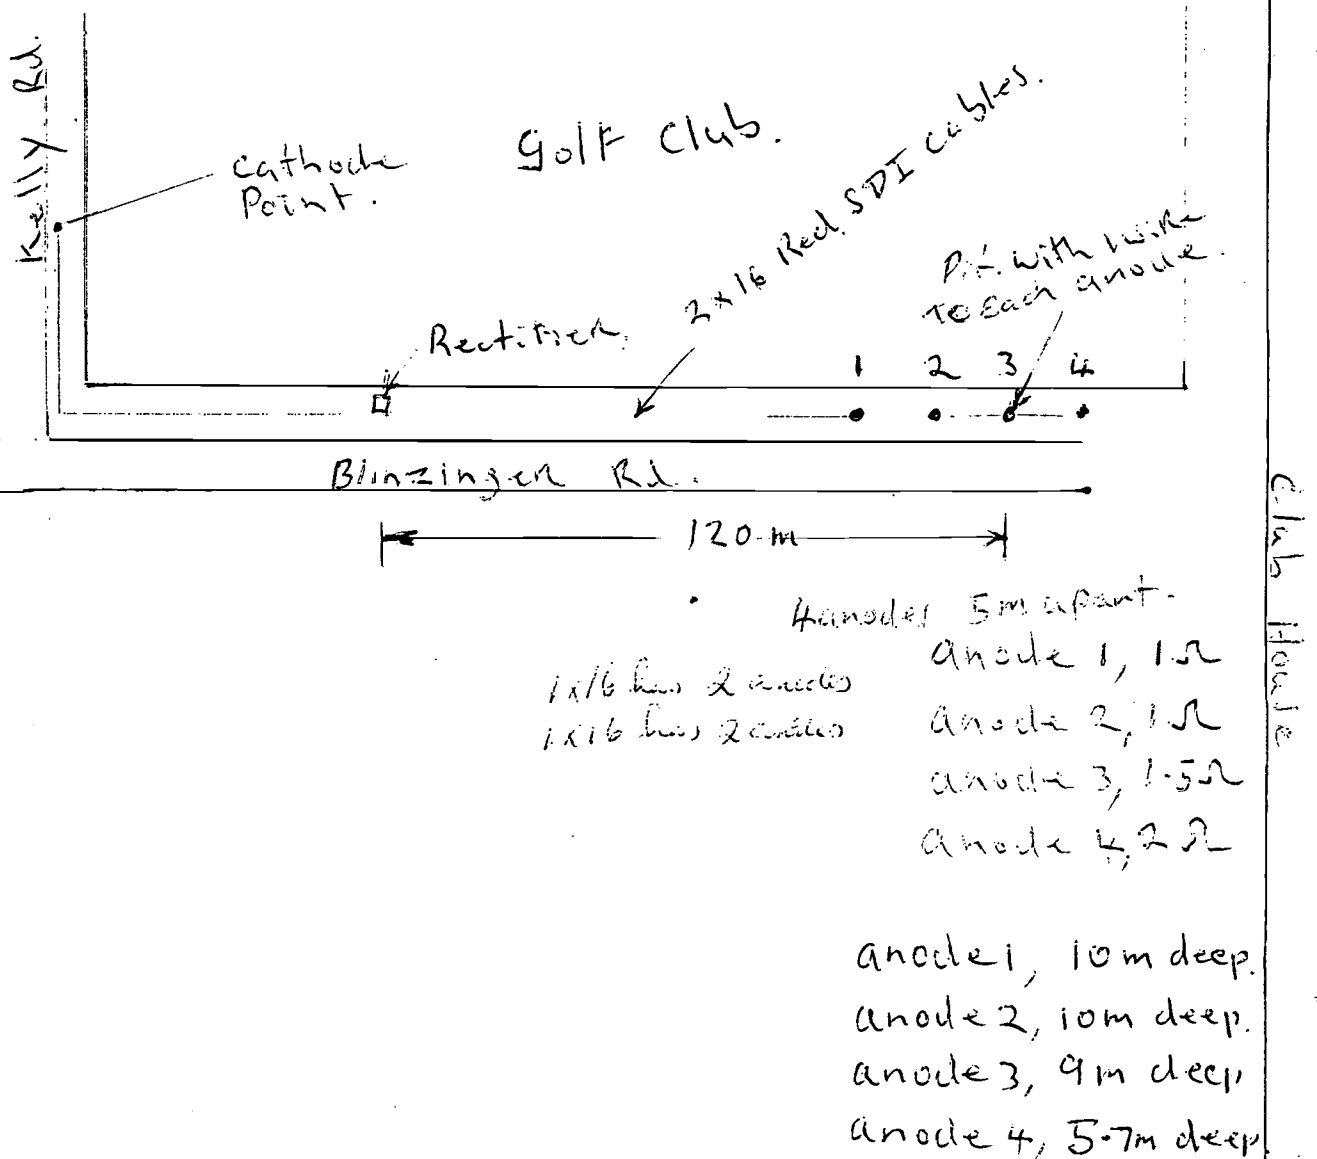 Kelly Rd.
Cathode
Point.
Golf Club.
2x16 Red SDI cables.
Pit with 1 wire
to Each anode.
Rectifier
1 2 3 4
Blinzinger Rd.
120 m
Club House
4 anodes 5m apart.
1x16 has 2 anodes
1x16 has 2 anodes
anode 1, 1Ω
anode 2, 1Ω
anode 3, 1.5Ω
anode 4, 2Ω
anode 1, 10m deep.
anode 2, 10m deep.
anode 3, 9m deep
anode 4, 5.7m deep